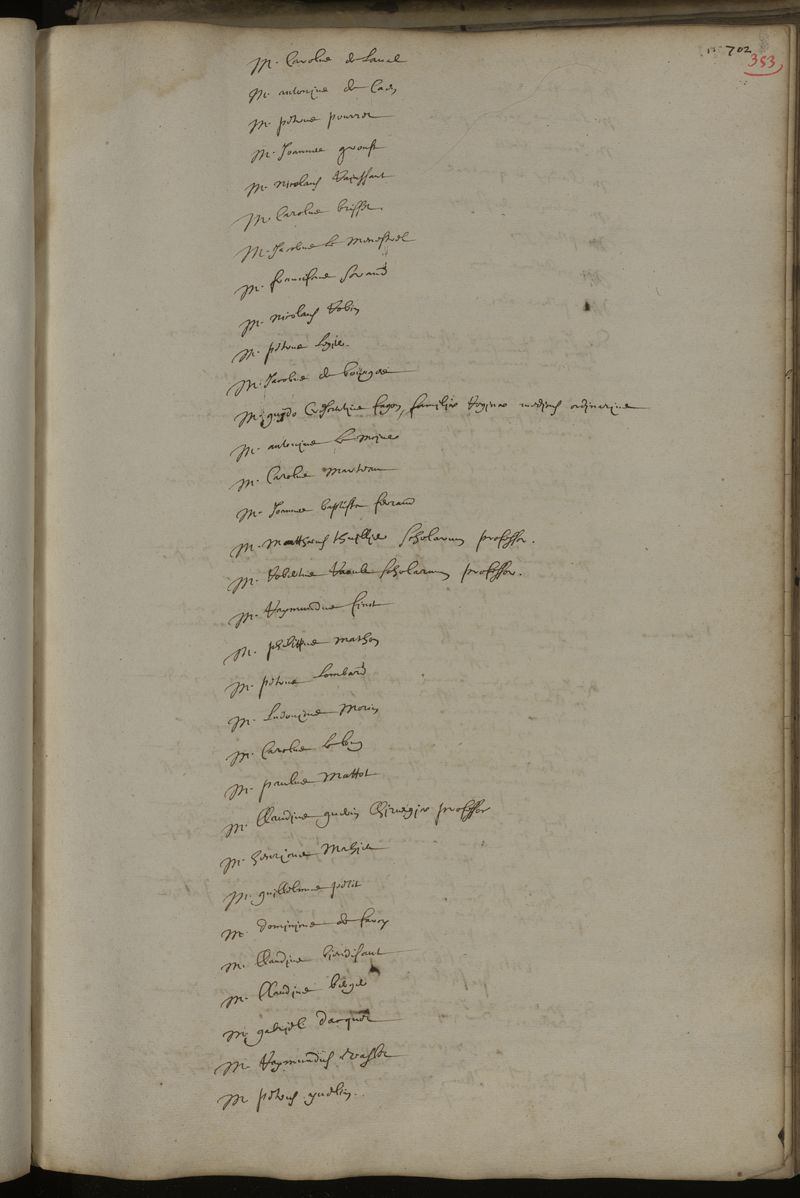 702
353
M. Carolus de Laval
M. antonius de Caen
M. petrus pourret
M. Joannes
M. nicolaus
M. Carolus brisset
M. Jacobus le Menestrel
M. franciscus
M. nicolaus Robin
M. petrus Legier
M. Jacobus de bourges
M. guido Crescentius fagon, familiæ Reginæ medicus ordinarius
M. antonius le moine
M. Carolus Marteau
M. Joannes baptista ferrand
M. Matthæus thuillier Scholarum professor.
M. Robertus Scholarum professor.
M. Raymundus finot
M. philippus
M. petrus Lombard
M. Ludovicus Morin
M. Carolus le long
M. paulus Mattot
M. Claudius guerin Chirurgiæ professor
M. henricus Mahieu
M. guillelmus petit
M. dominicus de farcy
M. Claudius
M. Claudius berger
M. gabriel Dacquet
M. Raymundus
M. petrus guerin.